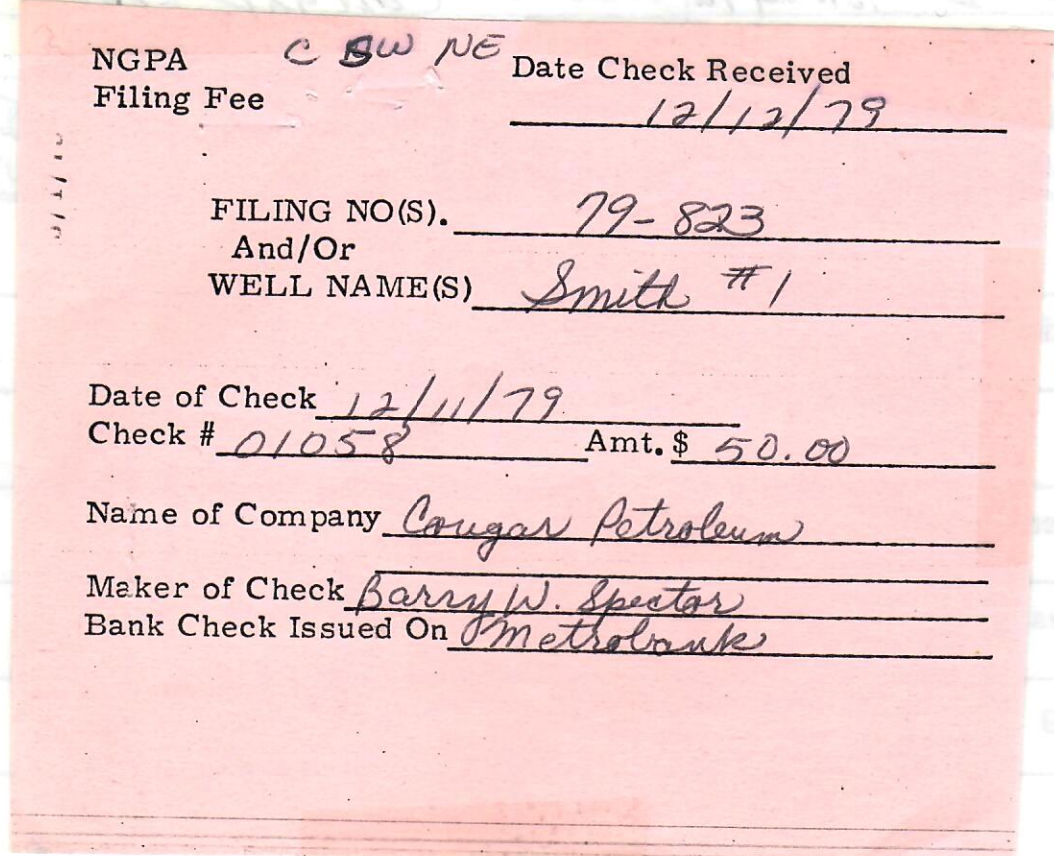 NGPA C SW NE Date Check Received
Filing Fee 12/12/79
FILING NO(S). 79-823
And/Or
WELL NAME(S) Smith #1
Date of Check 12/11/79
Check # 01058 Amt. $ 50.00
Name of Company Cougar Petroleum
Maker of Check Barry W. Spector
Bank Check Issued On Metrobank